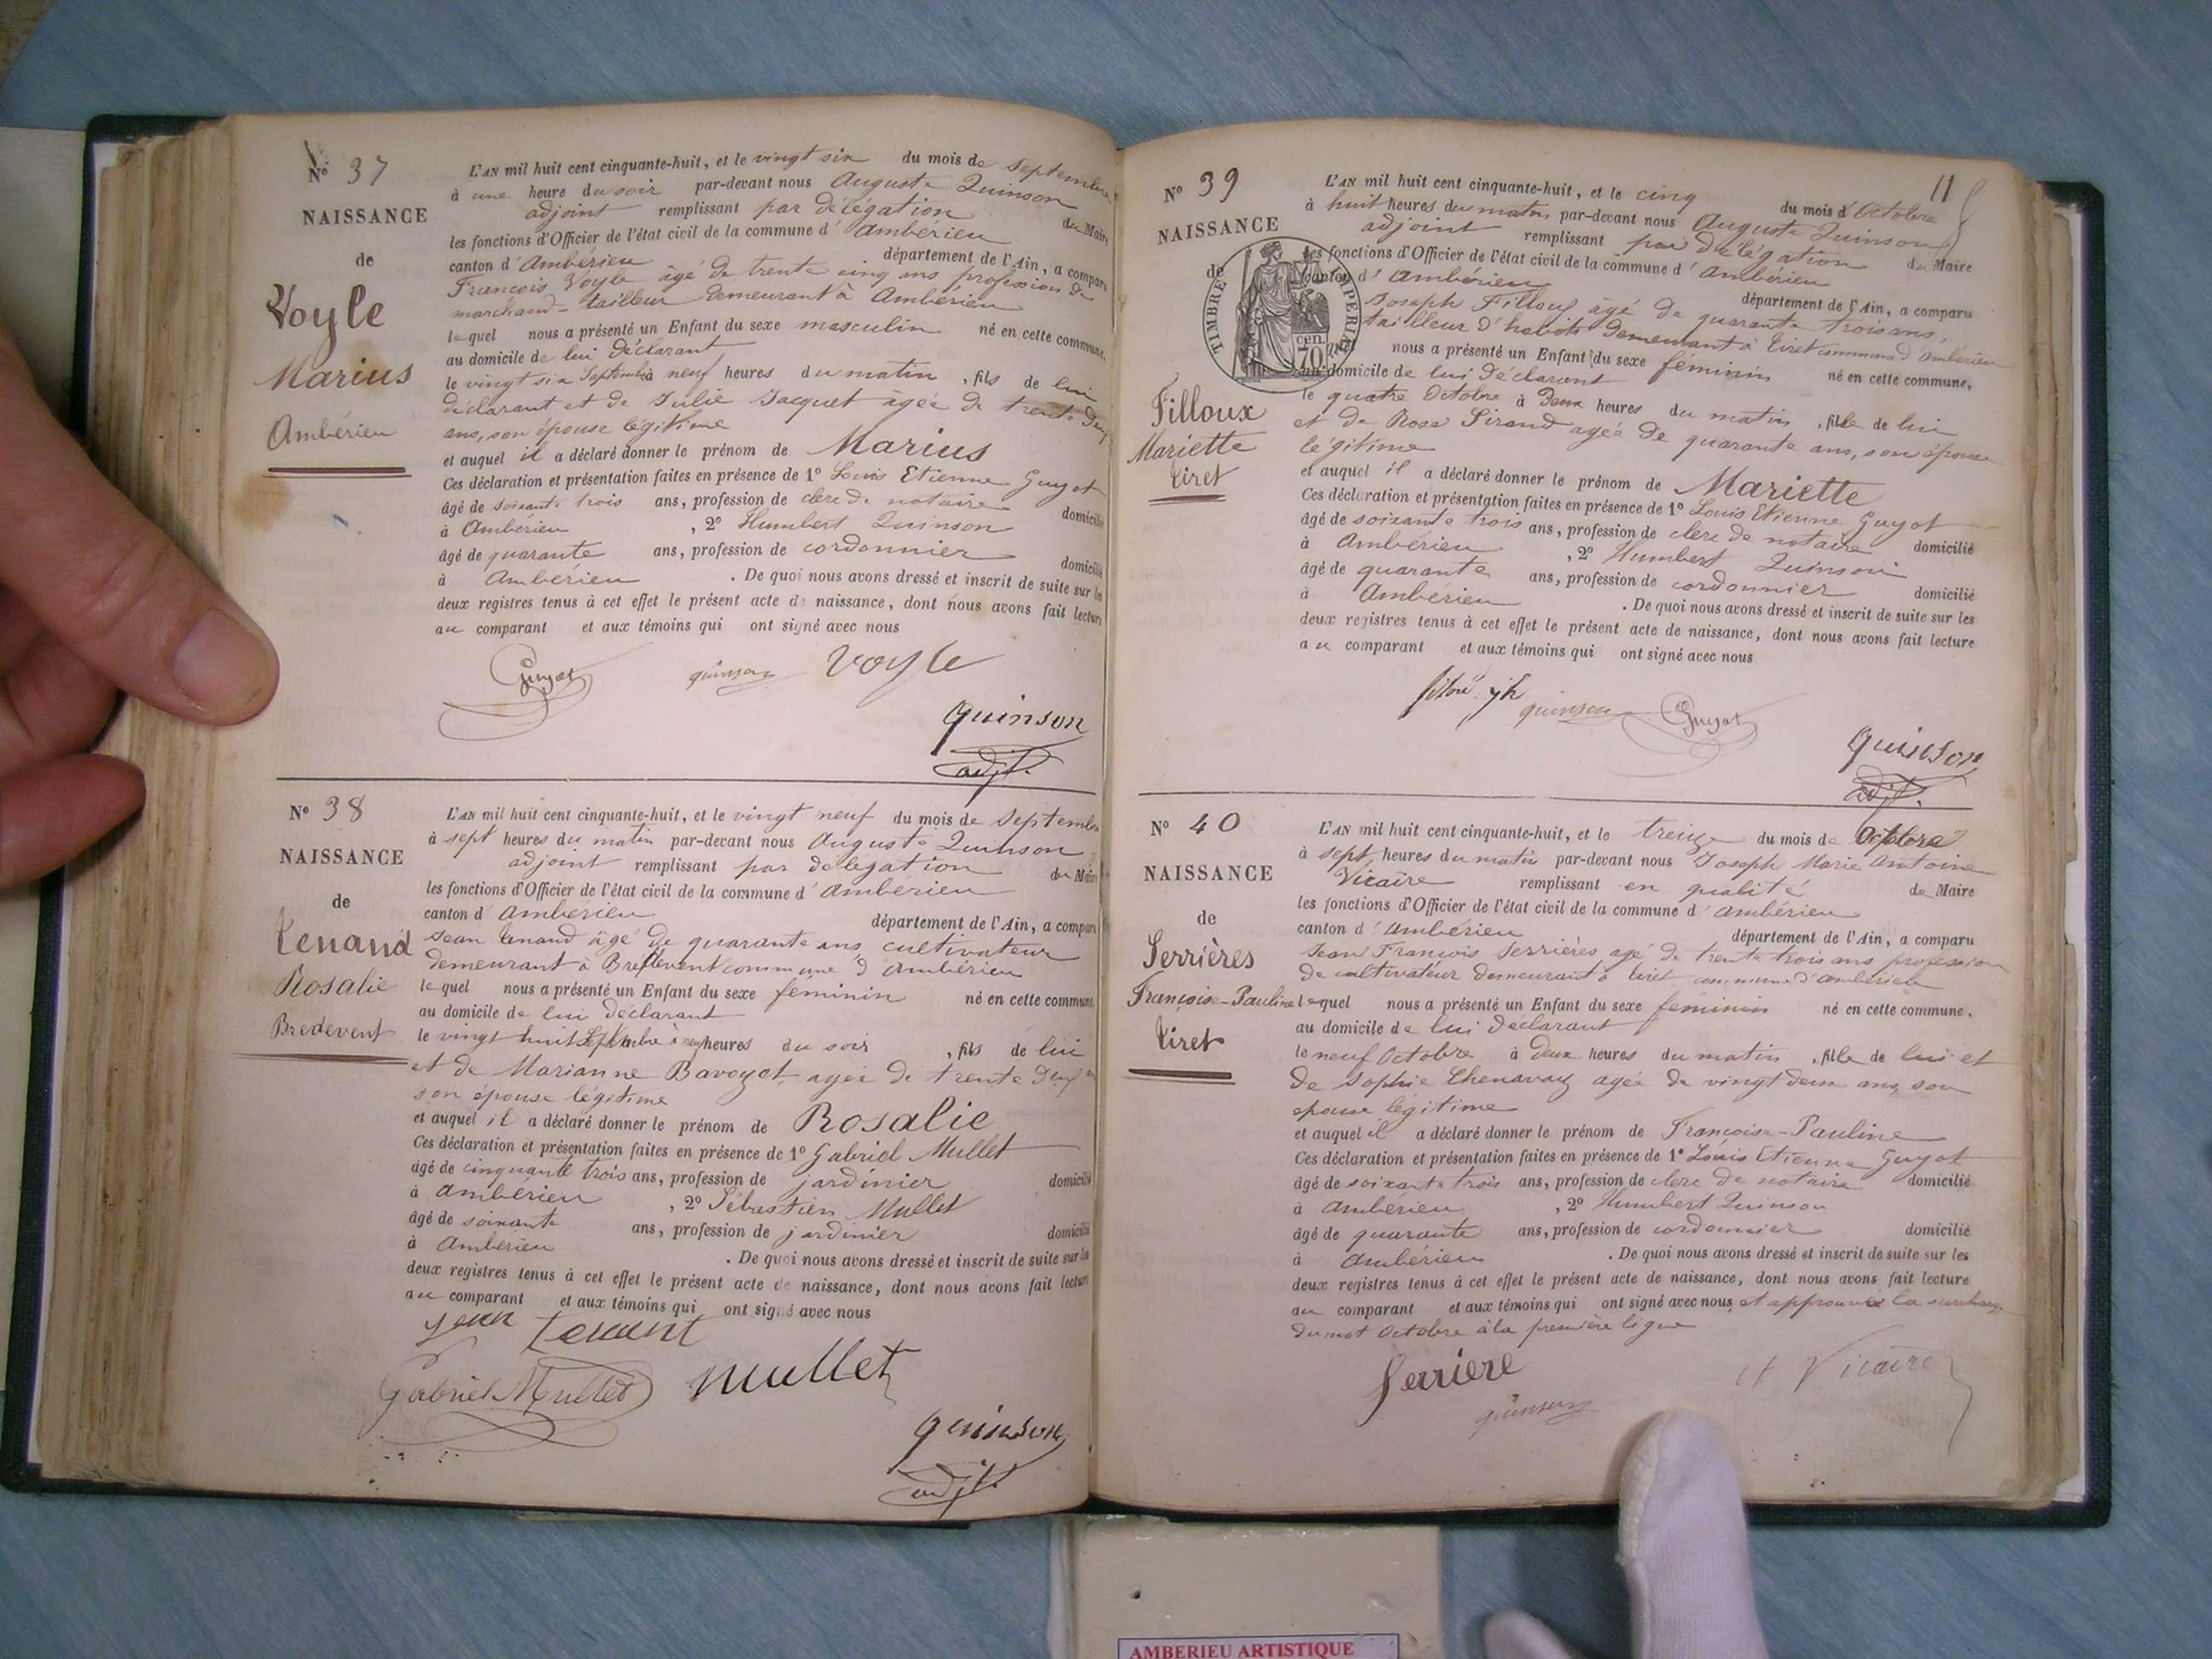 N° 37
NAISSANCE
de
Voyle
Marius
Ambérieu
L'AN mil huit cent cinquante-huit, et le vingt six du mois de Septembre
à une heure du soir par-devant nous Auguste Quinson
adjoint remplissant par délégation du Maire
les fonctions d'Officier de l'état civil de la commune d'Ambérieu
canton d'Ambérieu département de l'Ain, a comparu
François Voyle âgé de trente cinq ans profession de
marchand-tailleur demeurant à Ambérieu
lequel nous a présenté un Enfant du sexe masculin né en cette commune,
au domicile de lui déclarant
le vingt six Septembre à neuf heures du matin, fils de lui
déclarant et de Julie Jacquet agée de trente deux
ans, son épouse légitime
et auquel il a déclaré donner le prénom de Marius
Ces déclaration et présentation faites en présence de 1° Louis Etienne Guyot
âgé de soixante trois ans, profession de clerc de notaire domicilié
à Ambérieu, 2° Humbert Quinson
âgé de quarante ans, profession de cordonnier domicilié
à Ambérieu. De quoi nous avons dressé et inscrit de suite sur les
deux registres tenus à cet effet le présent acte de naissance, dont nous avons fait lecture
au comparant et aux témoins qui ont signé avec nous
Guyot quinson Voyle
quinson
adjt.
N° 38
NAISSANCE
de
Lenand
Rosalie
Bredevent
L'AN mil huit cent cinquante-huit, et le vingt neuf du mois de Septembre
à sept heures du matin par-devant nous Auguste Quinson
adjoint remplissant par délégation du Maire
les fonctions d'Officier de l'état civil de la commune d'Ambérieu
canton d'Ambérieu département de l'Ain, a comparu
Jean Lenand âgé de quarante ans, cultivateur
demeurant à Bredevent commune d'Ambérieu
lequel nous a présenté un Enfant du sexe féminin né en cette commune,
au domicile de lui déclarant
le vingt huit Septembre à neuf heures du soir, fils de lui
et de Marianne Bavozat, agée de trente deux ans
son épouse légitime
et auquel il a déclaré donner le prénom de Rosalie
Ces déclaration et présentation faites en présence de 1° Gabriel Mullet
âgé de cinquante trois ans, profession de jardinier domicilié
à Ambérieu, 2° Sébastien Mullet
âgé de soixante ans, profession de jardinier domicilié
à Ambérieu. De quoi nous avons dressé et inscrit de suite sur les
deux registres tenus à cet effet le présent acte de naissance, dont nous avons fait lecture
au comparant et aux témoins qui ont signé avec nous
Jean Lenant
Gabriel Mullet mullet
quinson
adjt.
11
N° 39
NAISSANCE
de
TIMBRE IMPERIAL
70 cen
Filloux
Mariette
Tiret
L'AN mil huit cent cinquante-huit, et le cinq du mois d'Octobre
à huit heures du matin par-devant nous Auguste Quinson
adjoint remplissant par délégation du Maire
les fonctions d'Officier de l'état civil de la commune d'Ambérieu
canton d'Ambérieu département de l'Ain, a comparu
Joseph Filloux âgé de quarante trois ans,
tailleur d'habits demeurant à Tiret commune d'Ambérieu
nous a présenté un Enfant du sexe féminin né en cette commune,
au domicile de lui déclarant
le quatre Octobre à deux heures du matin, fille de lui
et de Rose Sirand agée de quarante ans, son épouse
légitime
et auquel il a déclaré donner le prénom de Mariette
Ces déclaration et présentation faites en présence de 1° Louis Etienne Guyot
âgé de soixante trois ans, profession de clerc de notaire domicilié
à Ambérieu, 2° Humbert Quinson
âgé de quarante ans, profession de cordonnier domicilié
à Ambérieu. De quoi nous avons dressé et inscrit de suite sur les
deux registres tenus à cet effet le présent acte de naissance, dont nous avons fait lecture
au comparant et aux témoins qui ont signé avec nous
quinson Guyot
quinson
adjt.
N° 40
NAISSANCE
de
Serrières
Françoise-Pauline
Tiret
L'AN mil huit cent cinquante-huit, et le treize du mois de Octobre
à sept heures du matin par-devant nous Joseph Marie Antoine
Vicaire remplissant en qualité de Maire
les fonctions d'Officier de l'état civil de la commune d'Ambérieu
canton d'Ambérieu département de l'Ain, a comparu
Jean François Serrières agé de trente trois ans profession
de cultivateur demeurant à Tiret commune d'Ambérieu
lequel nous a présenté un Enfant du sexe féminin né en cette commune,
au domicile de lui déclarant
le neuf Octobre à deux heures du matin, fille de lui et
de Sophie Chenavaz agée de vingt deux ans, son
epouse légitime
et auquel il a déclaré donner le prénom de Françoise-Pauline
Ces déclaration et présentation faites en présence de 1° Louis Etienne Guyot
âgé de soixante trois ans, profession de clerc de notaire domicilié
à Ambérieu, 2° Humbert Quinson
âgé de quarante ans, profession de cordonnier domicilié
à Ambérieu. De quoi nous avons dressé et inscrit de suite sur les
deux registres tenus à cet effet le présent acte de naissance, dont nous avons fait lecture
au comparant et aux témoins qui ont signé avec nous, et approuvé la surcharge
du mot Octobre à la première ligne
Serriere
quinson
Vicaire
AMBERIEU ARTISTIQUE